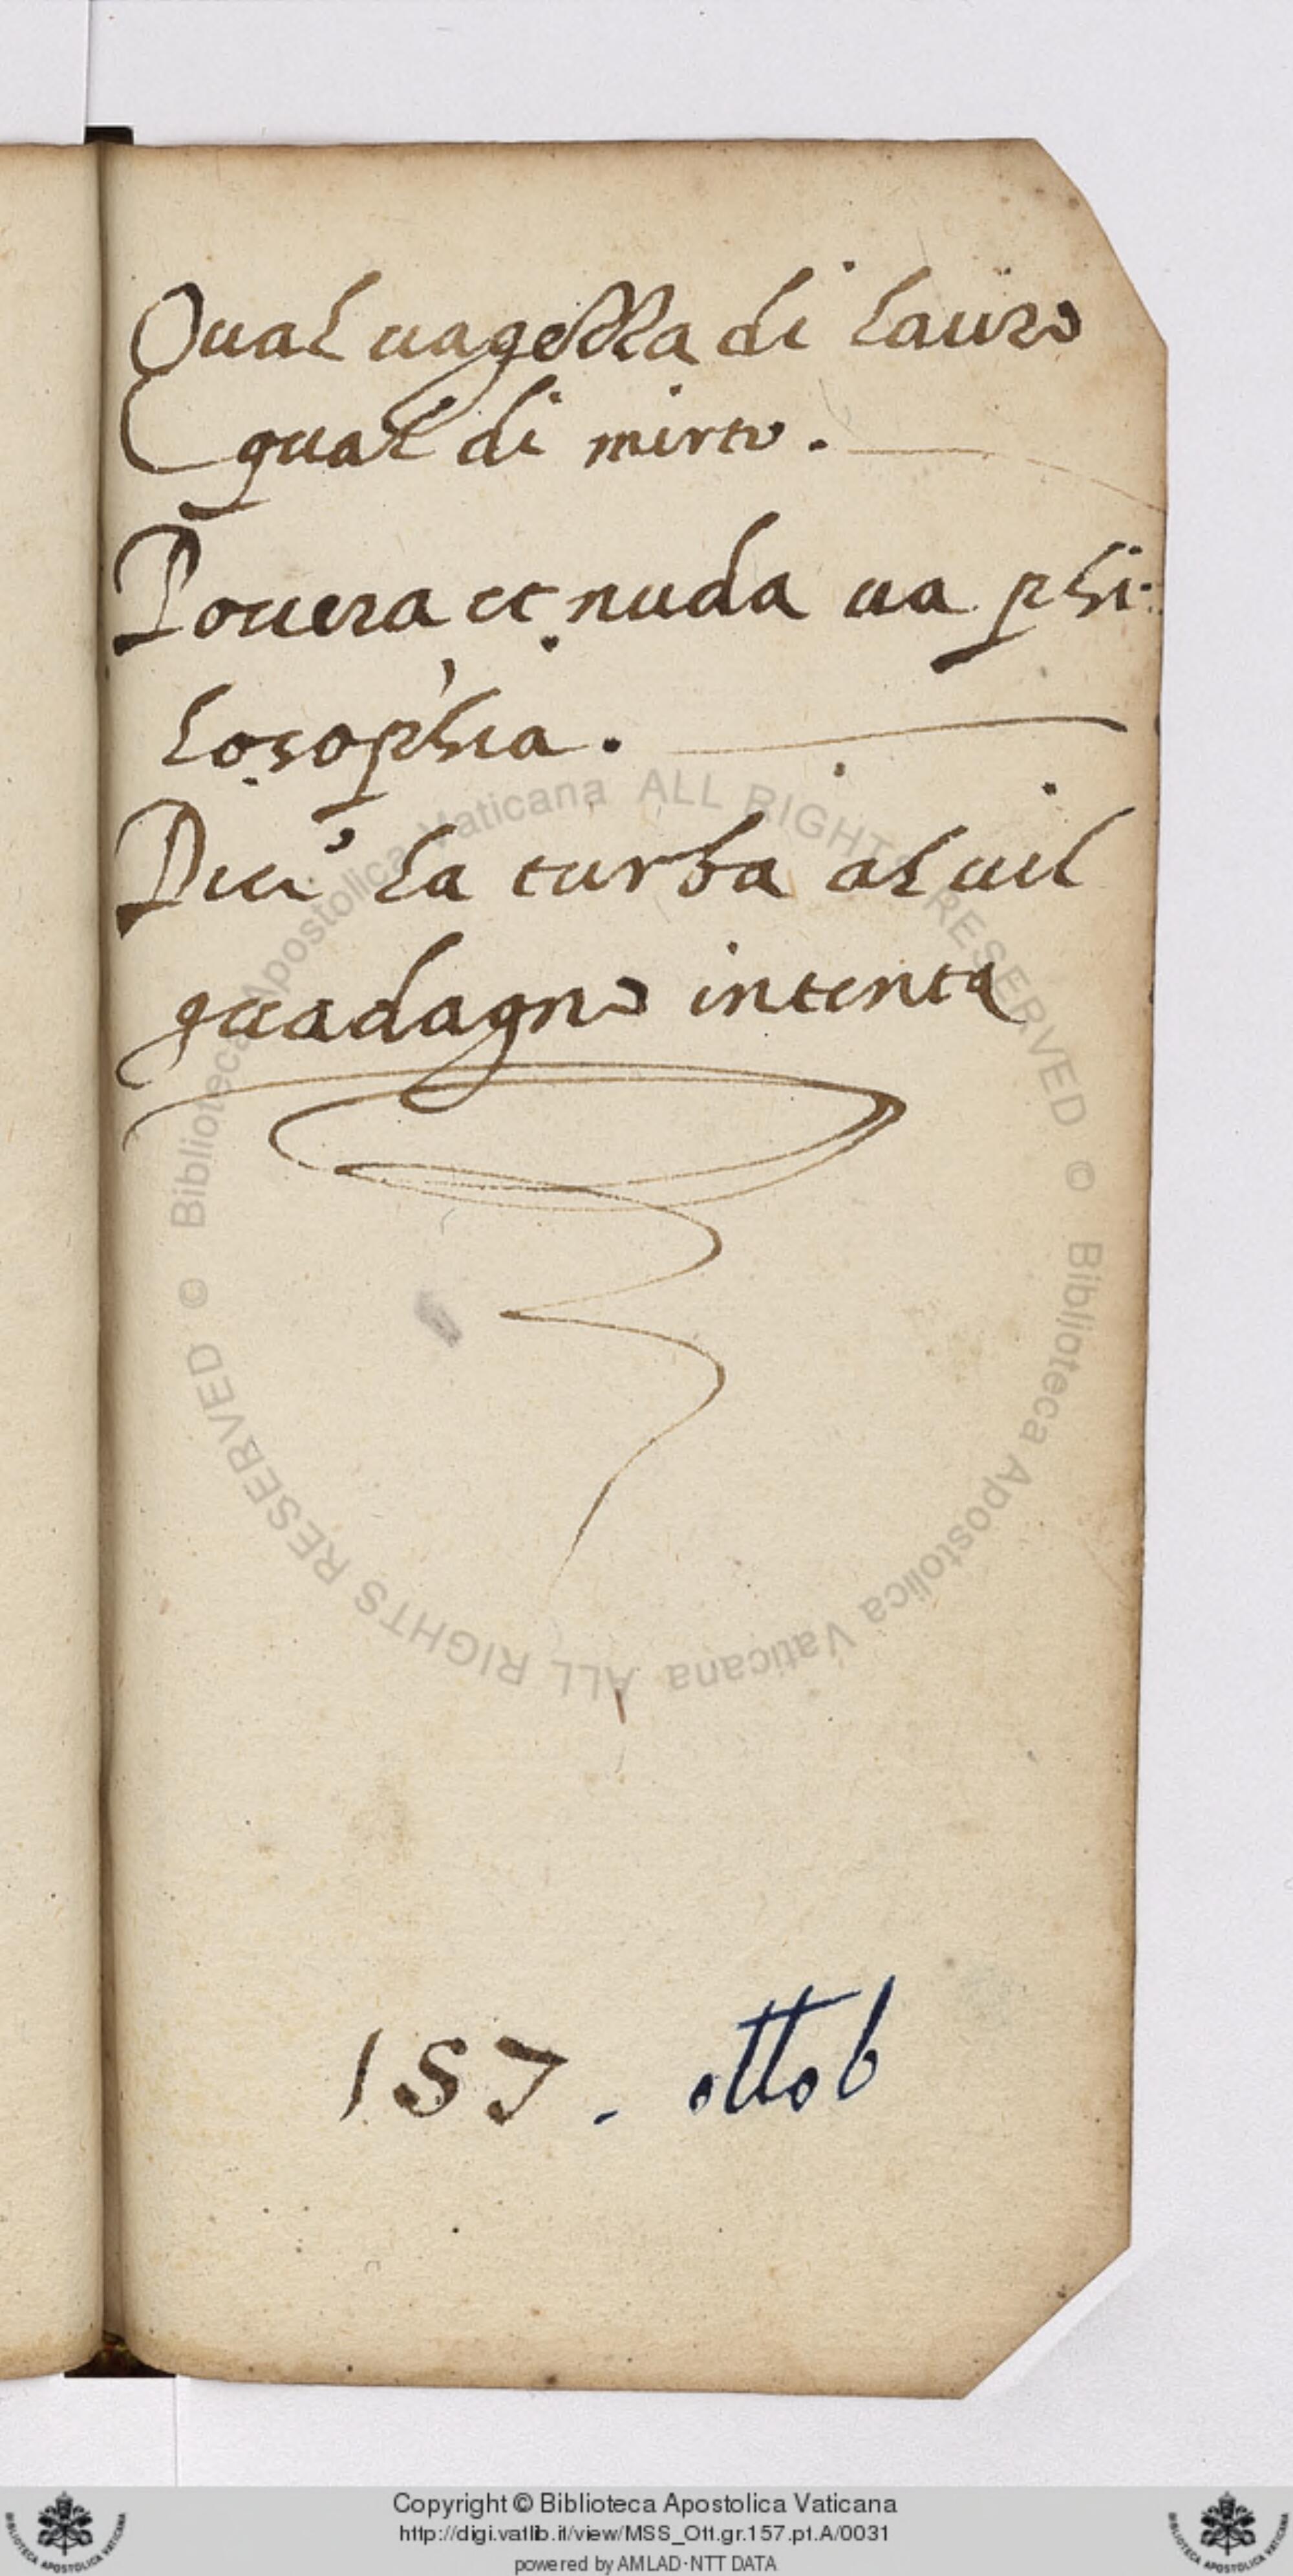 Qual uagezza di lauro
qual di mirto.
Pouera et nuda ua phi-
losophia.
la turba al uil
guadagno intenta
157. ottob
© Biblioteca Apostolica Vaticana ALL RIGHTS RESERVED © Biblioteca Apostolica Vaticana ALL RIGHTS RESERVED
Copyright © Biblioteca Apostolica Vaticana
http://digi.vatlib.it/view/MSS_Ott.gr.157.pt.A/0031
powered by AMLAD-NTT DATA
BIBLIOTECA APOSTOLICA VATICANA
BIBLIOTECA APOSTOLICA VATICANA